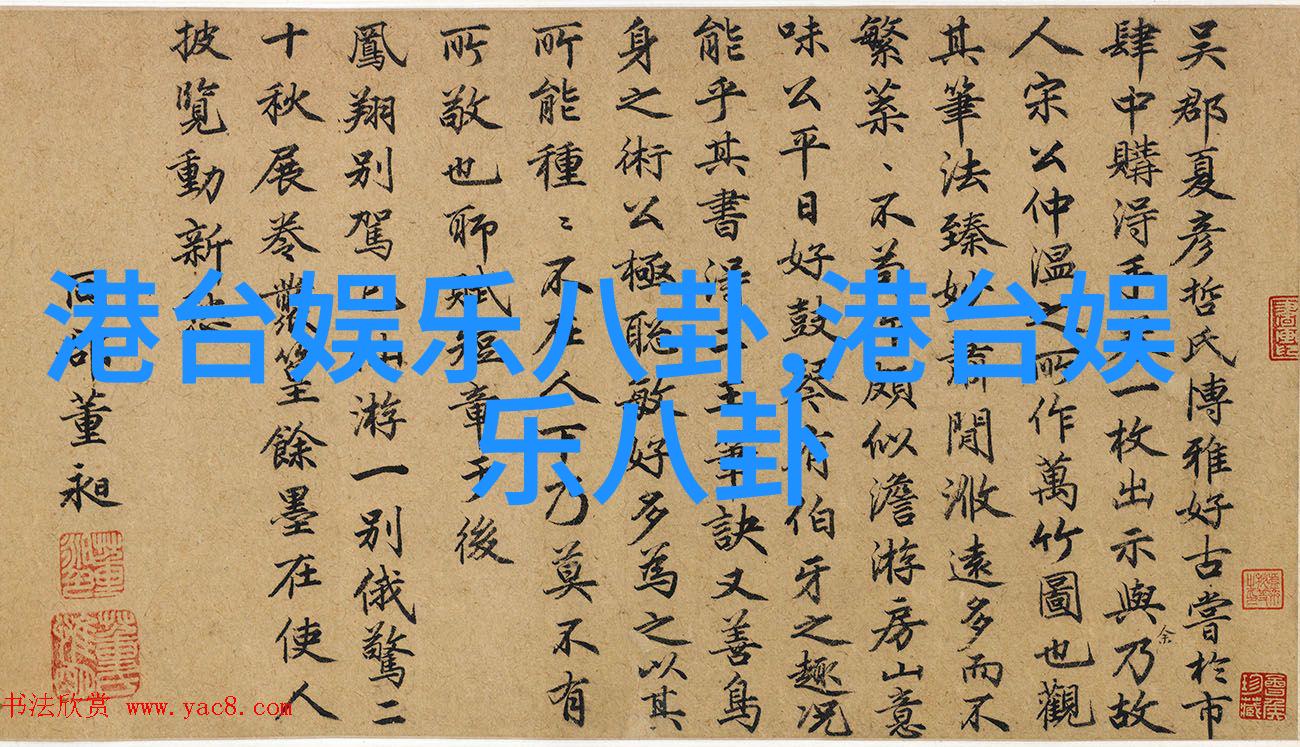 吴郡夏彦哲氏博雅好古嘗於市
肆中購得手 一枚出示與乃故
余
人宋公仲温之所作萬竹圖也觀
其筆法臻妙 閒 遠多而不
繁 、不 頗似澹游房山意
味公平日好鼓琴有伯牙之趣况
能乎其書得二王筆訣又善鳥
身之術公極聪敏好多為之以其
所能種〻不在人下乃莫不有
所敬也聊賦短章于後
鳳翔别駕 游一别俄驚二
十秋展卷 餘墨在使人
披覽動新
董昶
港台娱乐八卦,港台娱
乐八卦
书法欣赏 www.yac8.com